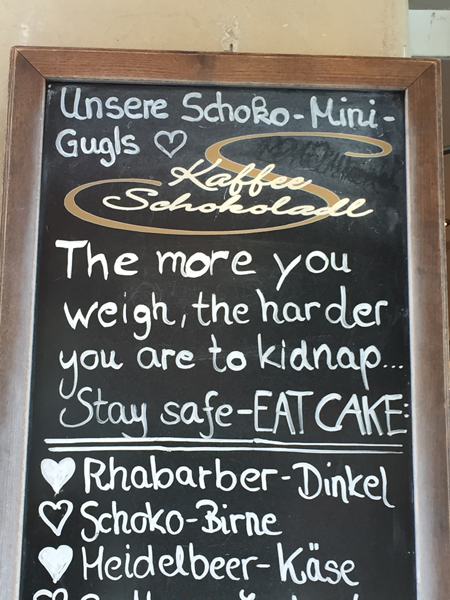 Unsere Schoko-Mini-
Gugls
Kaffee
Schokoladl
The more you
weigh, the harder
you are to kidnap...
Stay safe-EAT CAKE:
Rhabarber-Dinkel
Schoko-Birne
Heidelbeer-Käse